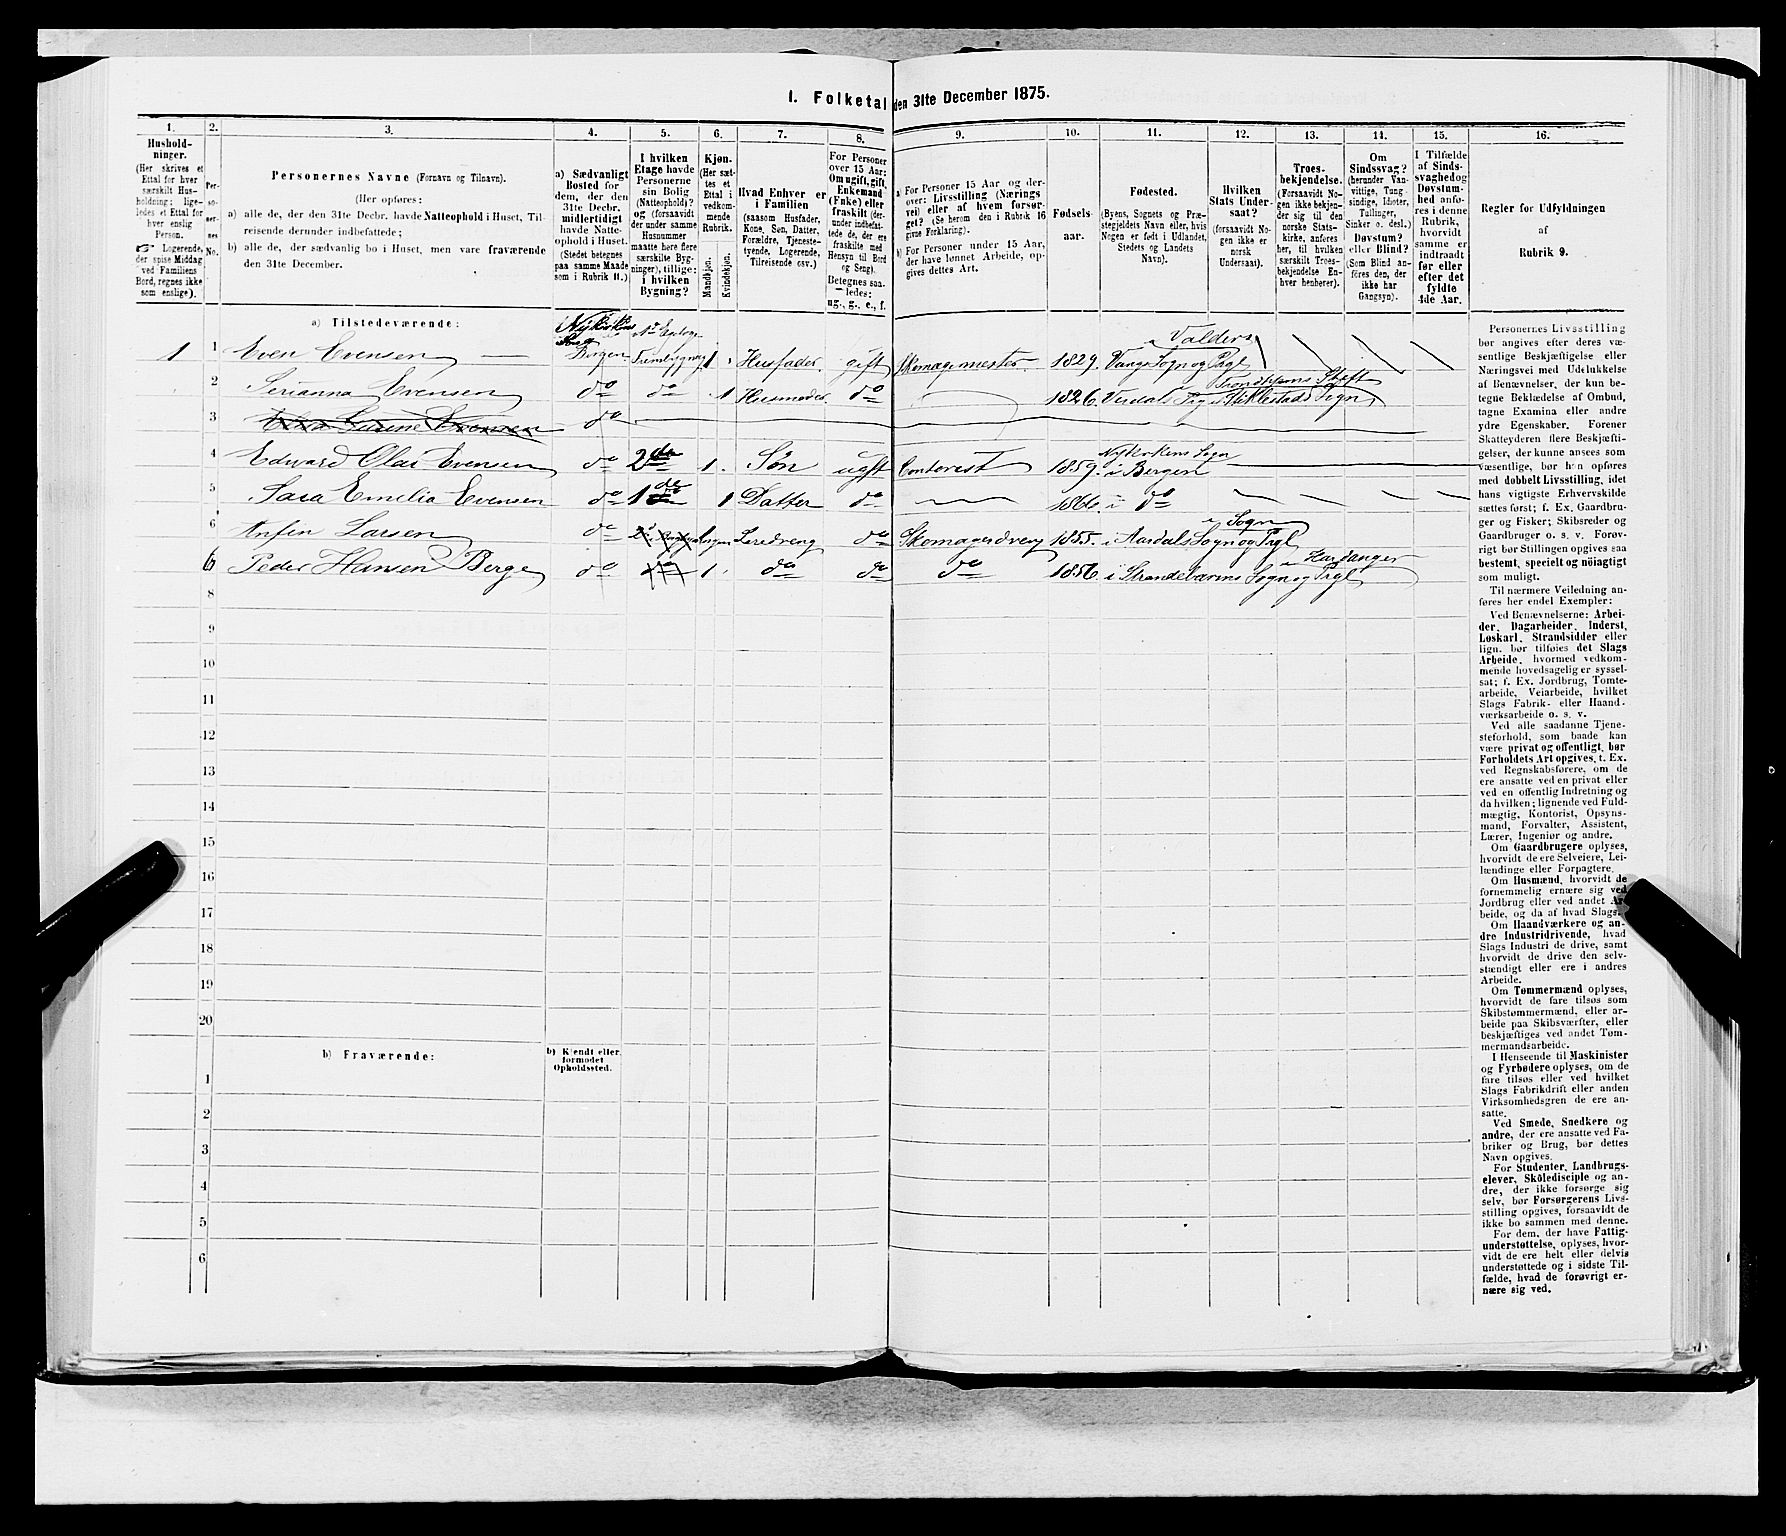 I. Folketal den 31te December 1875.
1. 2. 3. 4. 5. 6. 7. 8. 9. 10. 11. 12. 13. 14. 15. 16.
Hushold-
ninger.
(Her skrives et
Ettal for hver
særskilt Hus-
holdning; lige-
ledes et Ettal for
hver enslig
Person.
Logerende,
der spise Middag
ved Familiens
Bord, regnes ikke
som enslige).
Per-
so-
ner-
nes
No.
Personernes Navne (Fornavn og Tilnavn).
(Her opføres:
a) alle de, der den 31te Decbr. havde Natteophold i Huset, Til-
reisende derunder indbefattede;
b) alle de, der sædvanlig bo i Huset, men vare fraværende
den 31te December.
a) Sædvanligt
Bosted for
dem, der den
31te Decbr.
midlertidigt
havde Natte-
ophold i Huset.
(Stedet betegnes
paa samme Maade
som i Rubrik 11.)
I hvilken
Etage havde
Personerne
sin Bolig
(Natteophold)?
og (forsaavidt
der under samme
Husnummer
maatte høre flere
særskilte Byg-
ninger), tillige:
i hvilken
Bygning?
Kjøn.
(Her sæt-
tes et
Ettal i
vedkom-
mende
Rubrik.
Mandkjøn.
Kvindekjøn.
Hvad Enhver er
i Familien
(saasom Husfader,
Kone, Søn, Datter,
Forældre, Tjeneste-
tyende, Logerende,
Tilreisende osv.)
For Personer
over 15 Aar:
Om ugift, gift,
Enkemand
(Enke) eller
fraskilt (der-
under indbefat-
tede de, der ere
fraskilte med
Hensyn til Bord
og Seng).
Betegnes saa-
ledes:
ug., g., e., f.
a) For Personer 15 Aar og der-
over: Livsstilling (Nærings
vei) eller af hvem forsør-
get? (Se herom den i Rubrik 16
givne Forklaring).
b) For Personer under 15 Aar,
der have lønnet Arbeide, op-
gives dettes Art.
Fødsels-
aar.
Fødested.
(Byens, Sognets og Præ-
stegjeldets Navn eller, hvis
Nogen er født i Udlandet,
Stedets og Landets
Navn).
Hvilken
Stats Under-
saat?
(forsaavidt No-
gen ikke er
norsk
Undersaat).
Troes-
bekjendelse.
(Forsaavidt No-
gen ikke bekjen-
der sig til den
norske Stats-
kirke, anføres
her, til hvilken
særskilt Troes-
bekjendelse En-
hver henhører).
Om
Sindssvag?
(herunder Van-
vittige, Tung-
sindige, Idioter,
Tullinger,
Sinker o. desl.)
Døvstum?
eller Blind?
(Som Blind an-
føres den, der
ikke har
Gangsyn).
I Tilfælde
af Sinds-
svaghed og
Døvstum-
hed anfø-
res i denne
Rubrik,
hvorvidt
samme er
indtraadt
før eller
efter det
fyldte
4de Aar.
Regler for Udfyldningen
af
Rubrik 9.
a) Tilstedeværende: Nykirkens
1 1 Even Evensen Bergen 1 Husfader gift Skomagermester 1829. Vangs Sogn og Prgl i Valders
2 Serianna Evensen do do 1 Husmoder do 1826. Verdals Prgl Stiklestads Sogn Trondhjems Stift
3 do
4 Edward Olai Evensen do 2 do 1. Søn ugft Contorist 1859. i Bergen Nykirkens Sogn
5 Sara Emelia Evensen do 1 do 1 Datter do 1866. i do
6 Anfin Larsen do Læredreng do Skomagerdreng 1855. i Aardals Sogn og Prgl i Sogn
6 Peder Hansen Berge do do 1. do do do 1856. i Strandebarms Sogn og Prgl i Hardanger
8
9
10
11
12
13
14
15
16
17
18
19
20
b) Fraværende: b) Kjendt eller
formodet
Opholdssted.
1
2
3
4
5
6
Personernes Livsstilling
bør angives efter deres væ-
sentlige Beskjæftigelse eller
Næringsvei med Udelukkelse
af Benævnelser, der kun be-
tegne Beklædelse af Ombud,
tagne Examina eller andre
ydre Egenskaber. Forener
Skatteyderen flere Beskjæfti-
gelser, der kunne ansees som
væsentlige, bør han opføres
med dobbelt Livsstilling, idet
hans vigtigste Erhvervskilde
sættes først; f. Ex. Gaardbru-
ger og Fisker; Skibsreder og
Gaardbruger o. s. v. Forøv-
rigt bør Stillingen opgives saa
bestemt, specielt og nöiagtigt
som muligt.
Til nærmere Veiledning an-
føres her endel Exempler:
Ved Benævnelserne: Arbei-
der, Dagarbeider, Inderst,
Løskarl, Strandsidder eller
lign. bør tilføies det Slags
Arbeide, hvormed vedkom-
mende hovedsagelig er syssel-
sat; f. Ex. Jordbrug, Tomte-
arbeide, Veiarbeide, hvilket
Slags Fabrik- eller Haand-
værksarbeide o. s. v.
Ved alle saadanne Tjene-
steforhold, som baade kan
være privat og offentligt, bør
Forholdets Art opgives, t. Ex.
ved Regnskabsførere, om de
ere ansatte ved en privat eller
ved en offentlig Indretning og
da hvilken; lignende ved Fuld-
mægtig, Kontorist, Opsyns-
mand, Forvalter, Assistent,
Lærer, Ingeniør og andre.
Om Gaardbrugere oplyses,
hvorvidt de ere Selveiere, Lei-
lændinge eller Forpagtere.
Om Husmænd, hvorvidt de
fornemmelig ernære sig ved
Jordbrug eller ved andet Ar-
beide, og da af hvad Slags.
Om Haandværkere og an-
dre Industridrivende, hvad
Slags Industri de drive, samt
hvorvidt de drive den selv-
stændigt eller ere i andres
Arbeide.
Om Tømmermænd oplyses,
hvorvidt de fare tilsøs som
Skibstømmermænd, eller ar-
beide paa Skibsværfter, eller
beskjæftiges ved andet Tøm-
mermandsarbeide.
I Henseende til Maskinister
og Fyrbødere oplyses, om de
fare tilsøs eller ved hvilket
Slags Fabrikdrift eller anden
Virksomhedsgren de ere an-
satte.
Ved Smede, Snedkere og
andre, der ere ansatte ved Fa-
briker og Brug, bør dettes
Navn opgives.
For Studenter, Landbrugs-
elever, Skoledisciple og an-
dre, der ikke forsørge sig
selv, bør Forsørgerens Livs-
stilling opgives, forsaavidt de
ikke bo sammen med denne.
For dem, der have Fattig-
understøttelse, oplyses, hvor-
vidt de ere helt eller delvis
understøttede og i sidste Til-
fælde, hvad de forøvrigt er-
nære sig ved.